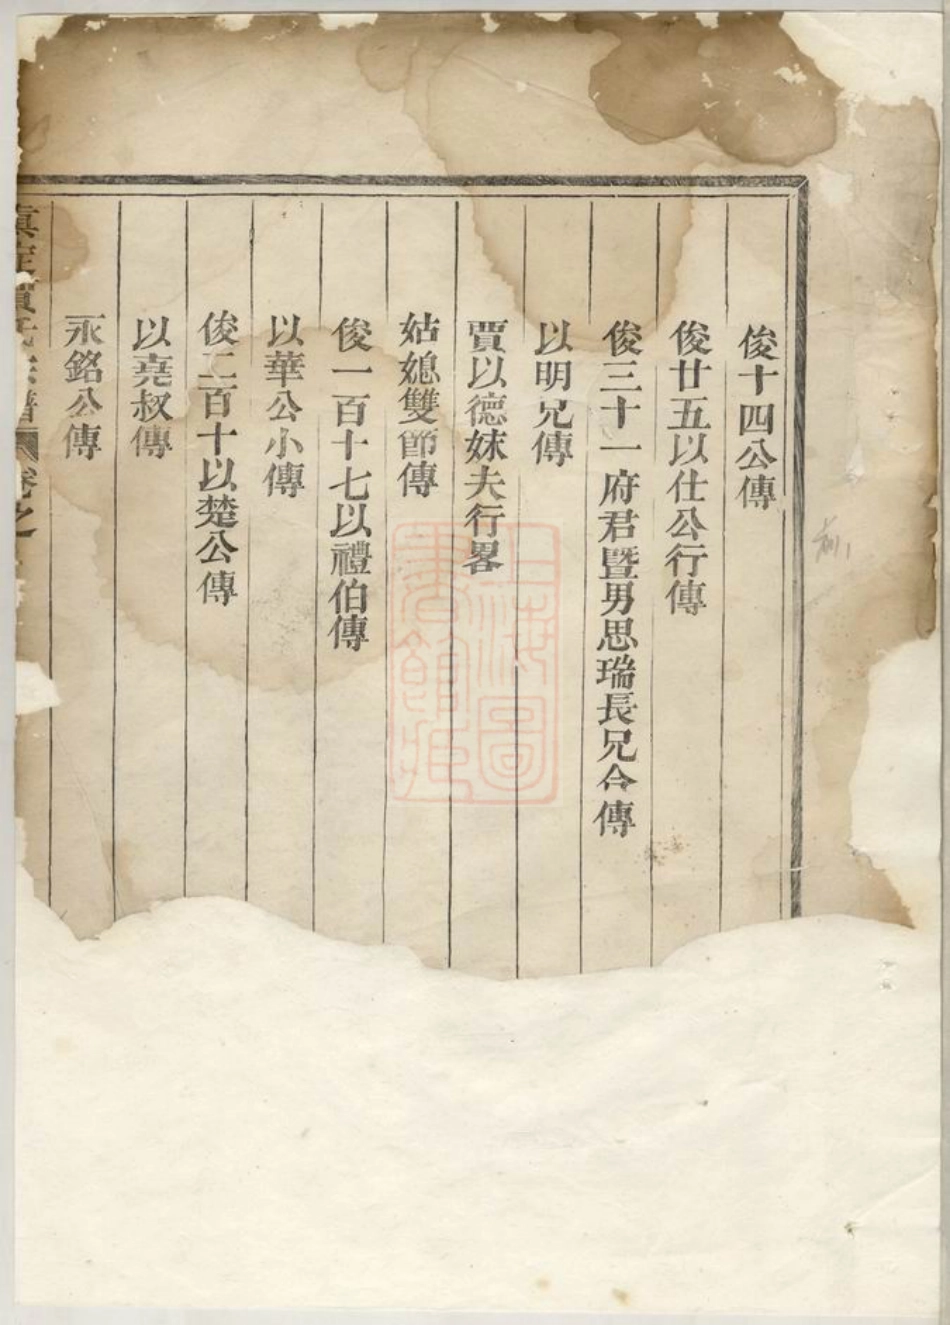 俊十四公傳
俊廿五以仕公行傳
俊三十一府君暨男思瑞長兄合傳
以明兄傳
賈以德妹夫行畧
姑媳雙節傳
俊一百十七以禮伯傳
以華公小傳
俊二百十以楚公傳
以堯叔傳
永銘公傳
真定賈氏宗譜 卷之
上海圖書館藏